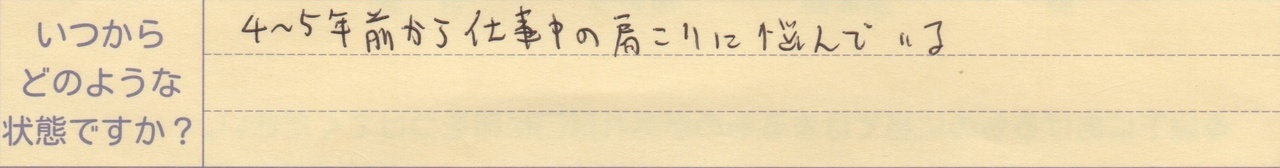 いつから
どのような
状態ですか？
4〜5年前から仕事中の肩こりに悩んでいる